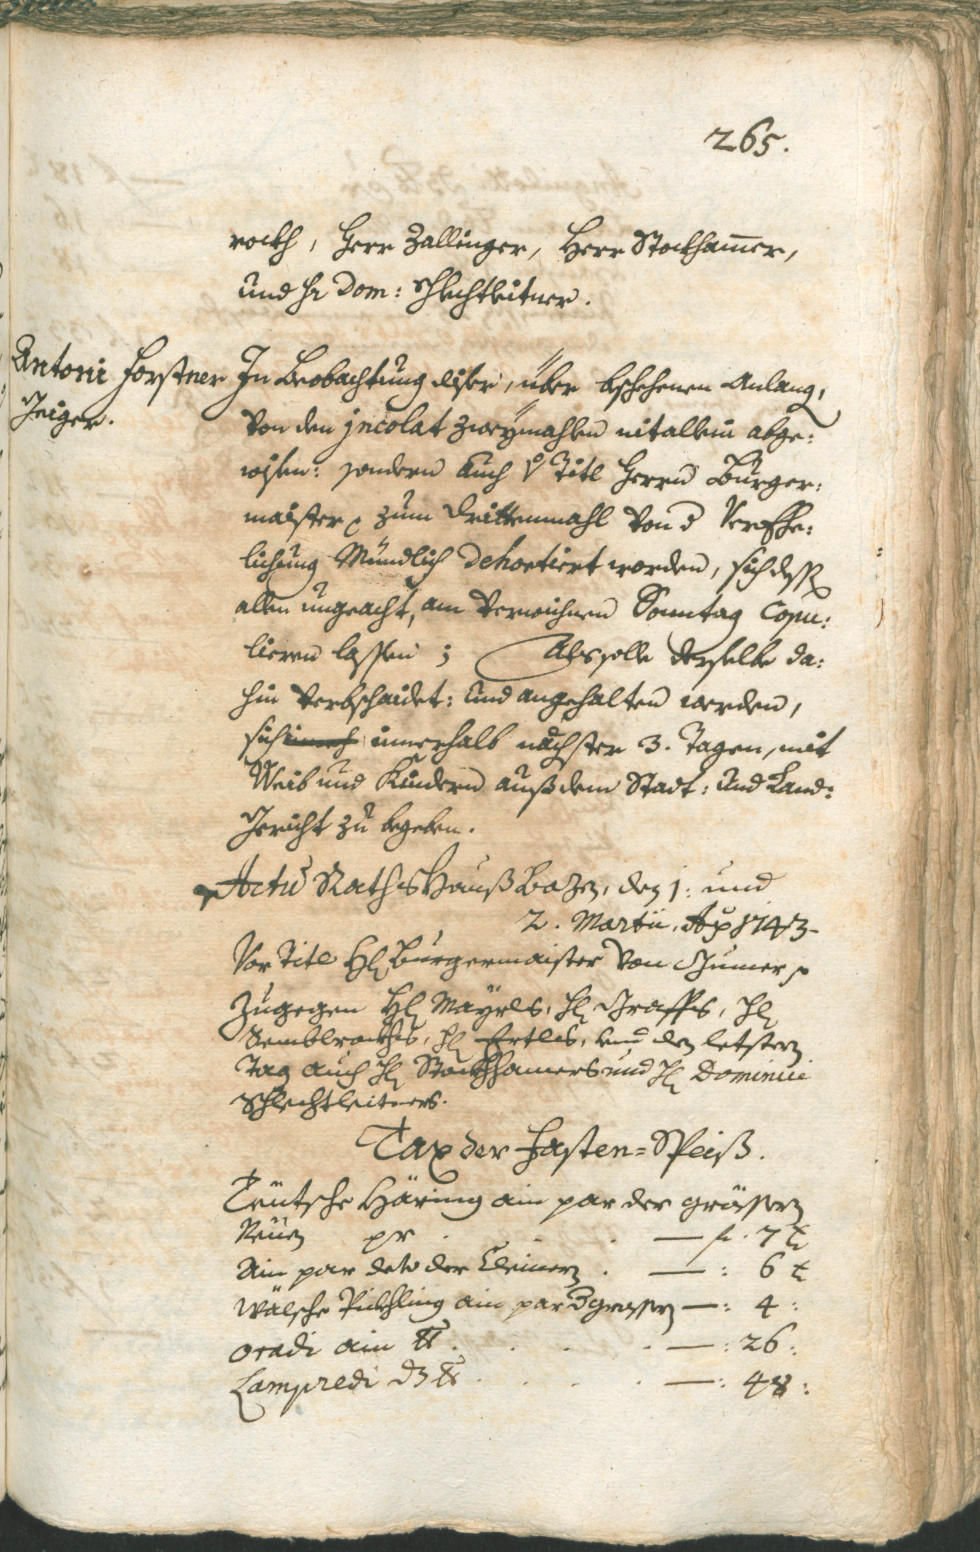 265.
rockh, Herr Zallinger, Herr Stockhamer,
und H: Dom: Schlechtleitner.
Antoni Forstner
Zeiger.
In Beobachtung diser, über bschehenen Anlang,
von den jncolat zweymahlen nit allein abge:
wisen: sondern auch Titl Herrn Burger:
maister zum drittenmahl von d Verehe:
lichung Mündlich dehortiert worden, sich dessen
allen ungeacht, am verwichnen Sonntag Copu:
lieren lassen; Als solle derselbe da:
hin verbschaidet: und angehalten werden,
sich innerhalb nächster 3. Tagen, mit
Weib und Kindern auß dem Stadt: und Land:
Gericht zu begeben.
Actu Raths Hauß Bozen, den 1: und
2. Martii, Ao 1743
Vor Titl H: Burgermaister von Gumer
Zugegen H: Mayrls, H: Graffs, H:
Semblrockhs, H: Ertles, und den letsten
Tag auch H: Stockhamers und H: Dominici
Schlechtleitners.
Tax der Fasten-Speiß.
Teutsche Häring ain par der grössern
Neuen pr . . — f. 7 x
Ain par deto der Cleinern . — : 6 x
Wälsche Pickhling ain par d grossen — : 4 :
oradi ain lb . . . . — : 26 :
Lampredi dz lb . . . . — : 48 :